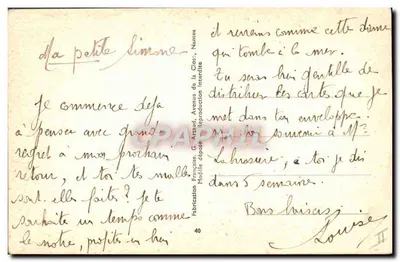 Ma petite Simone
Je commence déjà
à penser avec grand
regret à mon prochain
retour, et toi tes malles
sont elles faites? Je te
souhaite un temps comme
le notre, profites en bien
Fabrication Française, G. Artaud, Avenue de la Close, Nantes
Modèle déposé Reproduction Interdite
40
il reviens comme cette dame
qui tombe à la mer.
Tu seras bien gentille de
distribuer les cartes que je
met dans ton enveloppe
souvenir à Mme
Labrosserie, à toi je dis
dans 5 semaines.
Bons baisers
Louise
II